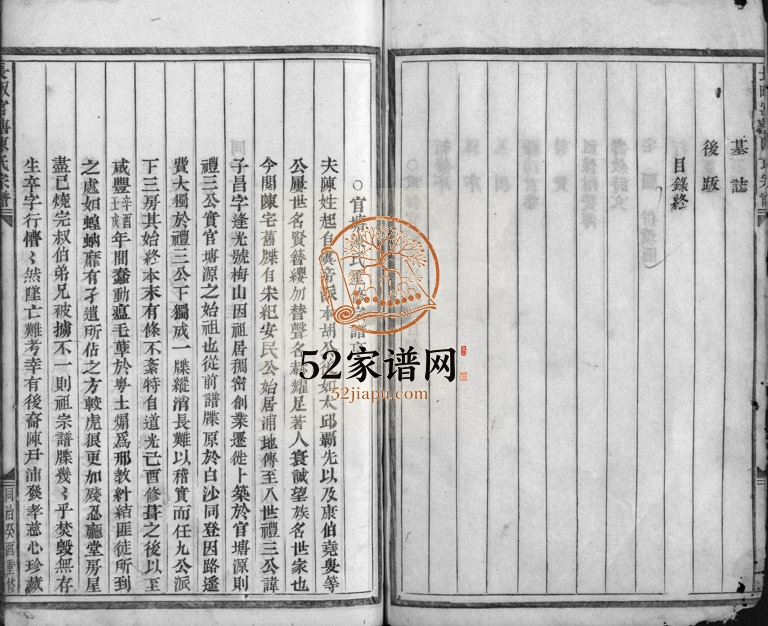 墓誌
後跋
目錄終
○官塘陳氏重修宗譜序
夫陳姓起自虞帝派本胡公 如太邱霸先以及康伯堯叟等
公屢世名賢簪纓勿替聲名赫耀足著人寰誠望族名世家也
今閱陳宅舊牒自宋紀安民公始居浦地傳至八世禮三公諱
子昌字逢光號梅山因祖居稠密創業遷徙卜築於官塘源則
禮三公實官塘源之始祖也從前譜牒原於白沙同登因路遙
費大獨於禮三公下獨成一牒縱消長難以稽實而任九公派
下三房其始終本末有條不紊特自道光己酉修葺之後以至
咸豐辛酉壬戌年間蠢動瘟毛孽於粵土煽爲邪教糾結匪徒所到
之處如蝗蝻靡有孑遺所佔之方較虎狼更加殘忍廳堂房屋
盡已燒完叔伯弟兄被擄不一則祖宗譜牒幾〻乎焚毀無存
生卒字行懵〻然墜亡難考幸有後裔陳尹沛發孝慈心珍藏
官塘陳氏宗譜
同治癸酉重修
52家谱网
52jiapu.com